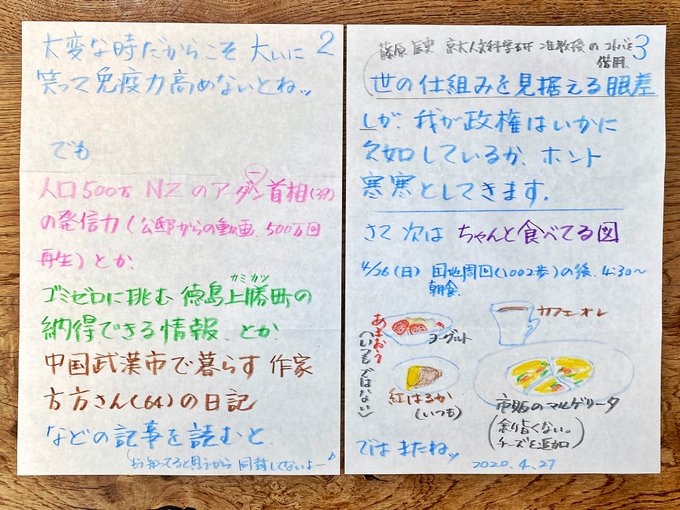 2
大変な時だからこそ、大いに
笑って免疫力高めないとね〜
でも
人口500万 NZのアーダーン首相(39)
の発信力(公邸からの動画、500万回
再生)とか、
カミカツ
ゴミゼロに挑む徳島上勝町の
納得できる情報、とか
中国武漢市で暮らす作家
方方さん(64)の日記
などの記事を読むと、
お知ってると思うから同封してないよー♪
3
藤原辰史 京大人文科学研 准教授のコトバを
借用
世の仕組みを見据える眼差
しが、我が政権はいかに
欠如しているか、ホント
寒寒としてきます。
さて次は ちゃんと食べてる図
4/26(日) 団地周回(1002歩)の後、4:30〜
朝食、
あまおう
(いつもではない)
ヨーグルト
カフェ・オレ
紅はるか
(いつも)
市販のマルゲリータ
(余り旨くない。
チーズを追加)
では またね〜
2020.4.27